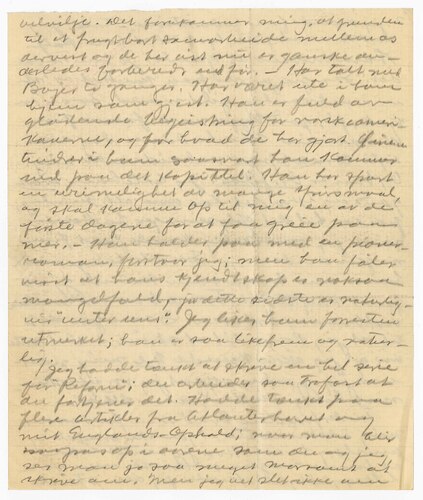 velvilje. Det forekommer mig, at grunden
til et frugtbart samarbeide mellem os
derover og de her ist nu er ganske an-
derledes forberedt end før. – Har talt med
Bojer to ganger. Har været ute i
hjem som gjest. Han er fuld av
glødende begeistring for norskameri-
kanerne, og for hvad de har gjort.
saasnart han kommer
ind paa det kapitlet. Han har spurt
en urimelighet av mange spørsmaal,
og skal komme op til mig en av de
første dagene for at faa greie paa
mer. – Han holder paa med en pioner-
roman, tror jeg; men han føler
visst at hans kjendskap er noksaa
mangelfuld,
"unter uns". Jeg liker ham forresten
utmerket; han er saa likefrem og natur-
lig.
Jeg hadde tænkt at skrive en hel serie
for "Reform"; den arbeider saa trofast at
den fortjener det. Hadde tænkt paa
flere artikler fra Atlanterhavet og
mit Englands-Ophold; men man blir
op i aarene som du og jeg,
ser man jo saa meget morsomt at
skrive om. Men jeg vet slet ikke om